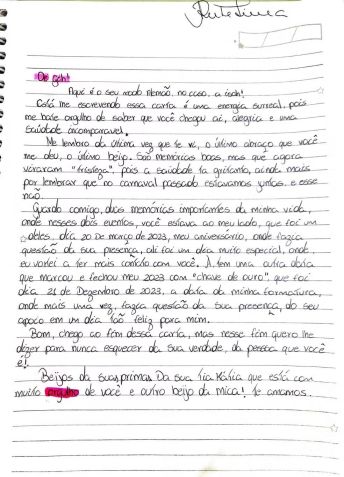 Rute Lima
Oi gch!
Aqui é o seu modo Memão, no caso, a Isah!
Está me escrevendo essa carta é uma energia surreal, pois
me bate orgulho de saber que você chegou aí, alegria e uma
saudade incomparavel.
Me lembro da última vez que te vi, o último abraço que você
me deu, o último beijo. São memórias boas, mas que agora
viraram "tristeza", pois a saudade ta gritante, ainda mais
por lembrar que no carnaval passado estavamos juntas, e esse
não.
Guardo comigo, duas memórias importantes da minha vida,
onde nesses dois eventos, você estava ao meu lado, que foi um
deles, dia 20 De março de 2023, meu aniversário, onde fazia
questão da sua presença, ali foi um dia muito especial, onde
eu voltei a ter mais contato com você. A tem uma outra data
que marcou e fechou meu 2023 com "chave de ouro", que foi
dia 21 de Dezembro de 2023, a data da minha formatura,
onde mais uma vez, fazia questão da sua presença, do seu
apoio em um dia tão feliz para mim.
Bom, chego ao fim dessa carta, mas nesse fim quero lhe
dizer para nunca esquecer da sua verdade, da pessoa que você
é!
Beijos da suas primas. Da sua tia Kátia que está com
muito orgulho de você e outro beijo da mica! Te amamos.